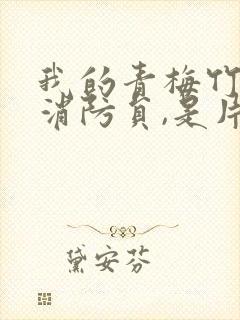 我的青梅竹
消防员,是片
黛安芬